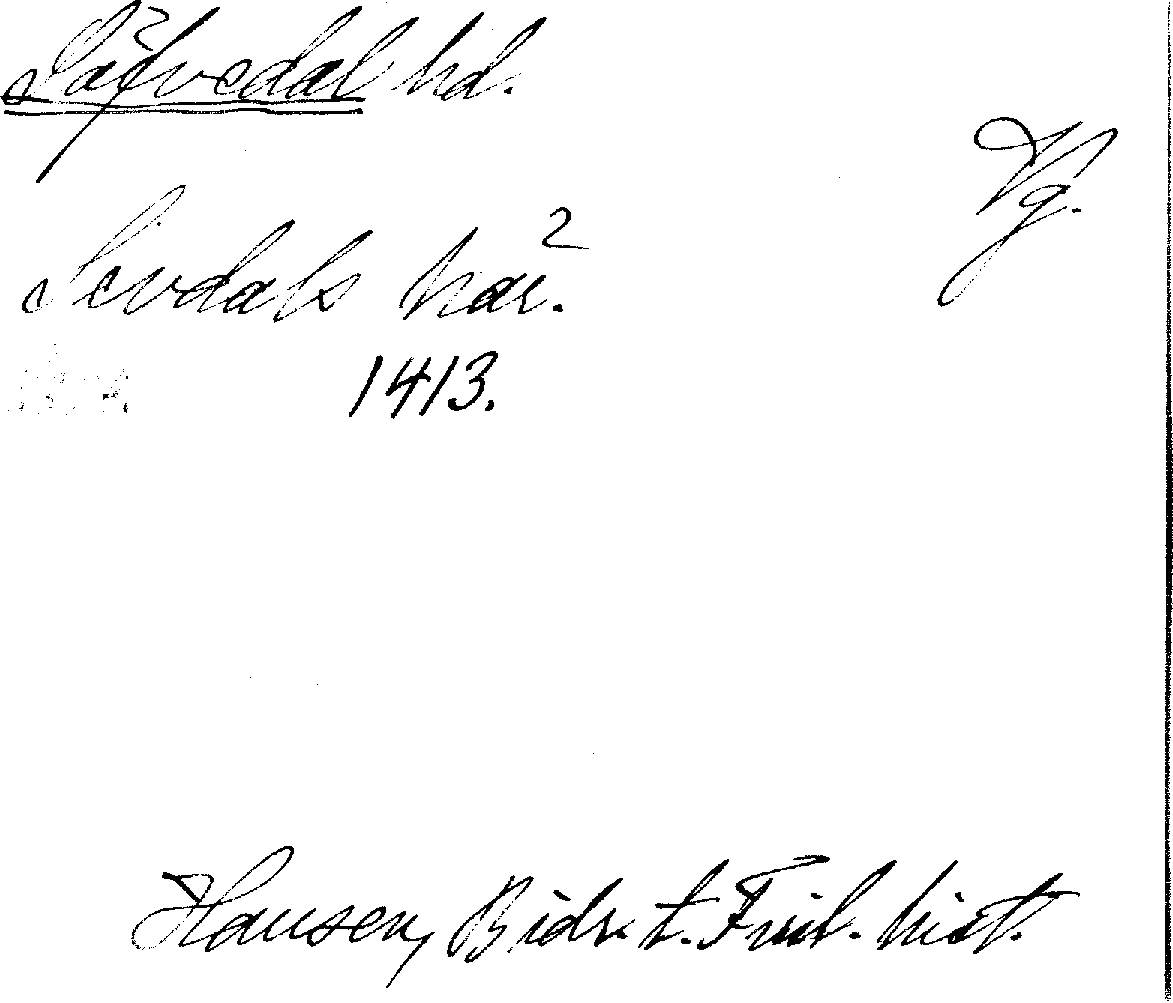 Säfvedal hd.
Vg.
Sevdals här.
1413.
Hausen, Bidr. t. Finl. hist.